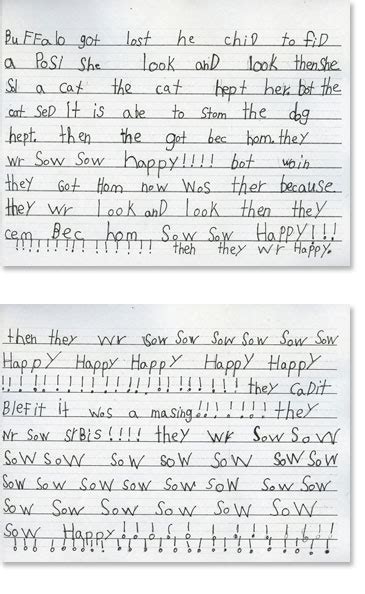 BuFFalo got lost he chiD to fiD
a PoSI She look anD look then she
SI a cat the cat hept her. bot the
cat SeD It is abe to Stom the dog
hept. then the got bec hom. they
wr Sow Sow happy!!!! bot
they Got Hom now WoS ther because
they wr look anD look then they
cem Bec hom Sow Sow HAppY!!!
!!!!!!!!!!!!!!!! then they wr Happy.
then they wr Sow Sow Sow Sow Sow Sow
HappY Happy Happy Happy Happy
!!!!!!!!!!!!!!!!!!!!!! they CaDit
BleFit it Wos a masing!!!!!!! they
wr Sow SrBis!!!! they wr Sow SoW
Sow SoW Sow soW SoW SoW Sow
Sow Sow Sow Sow Sow Sow Sow Sow
Sow Sow Sow Sow Sow Sow
Sow Happy!!!!!!!!!!!!
!!!!!!!!!!!!!!!!!!!!!!!!